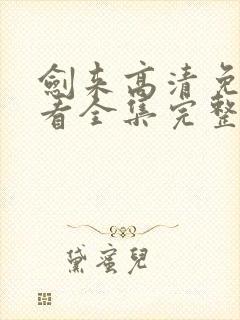 劍来高清免
看全集完整
黛蜜兒